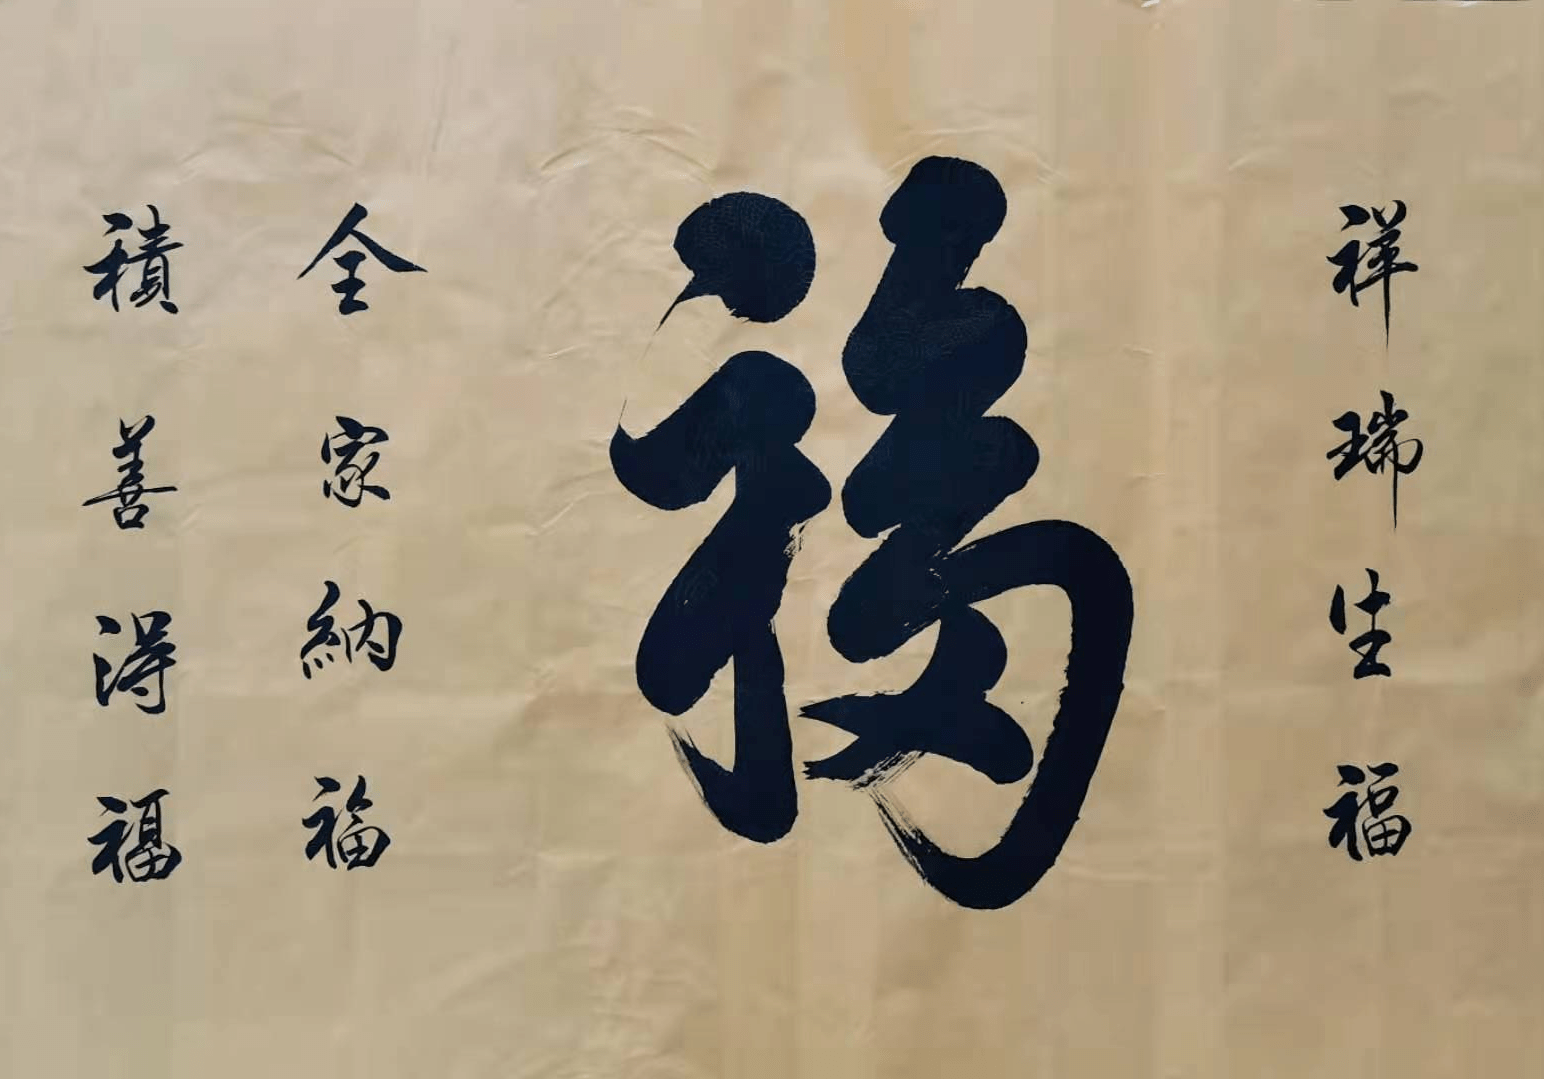 祥瑞生福
福
全家納福
積善得福